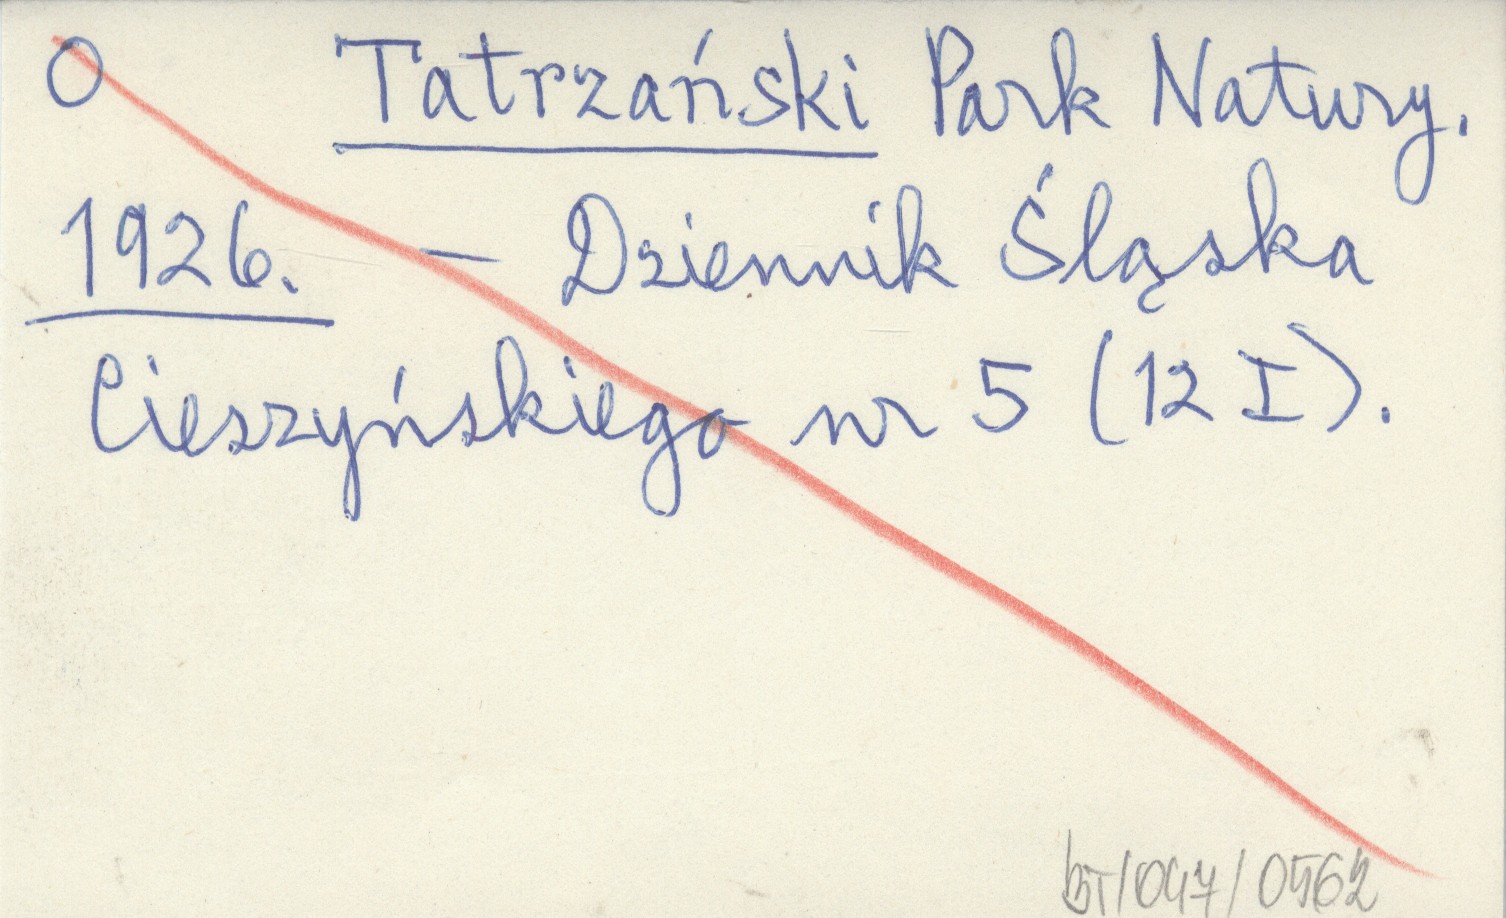 O Tatrzański Park Natury.
1926. — Dziennik Śląska
Cieszyńskiego nr 5 (12 I).
BT/047/0562